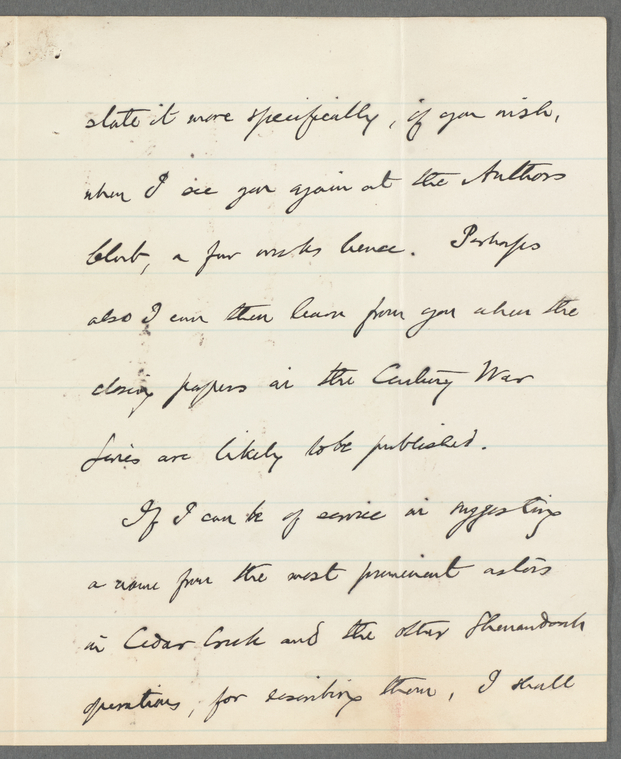 state it more specifically, if you wish,
when I see you again at the Authors
Club, a few weeks hence. Perhaps
also I can then learn from you when the
closing papers in the Century War
Series are likely to be published.
If I can be of service in suggesting
a name from the most prominent actors
in Cedar Creek and the other Shenandoah
operations, for describing them, I shall